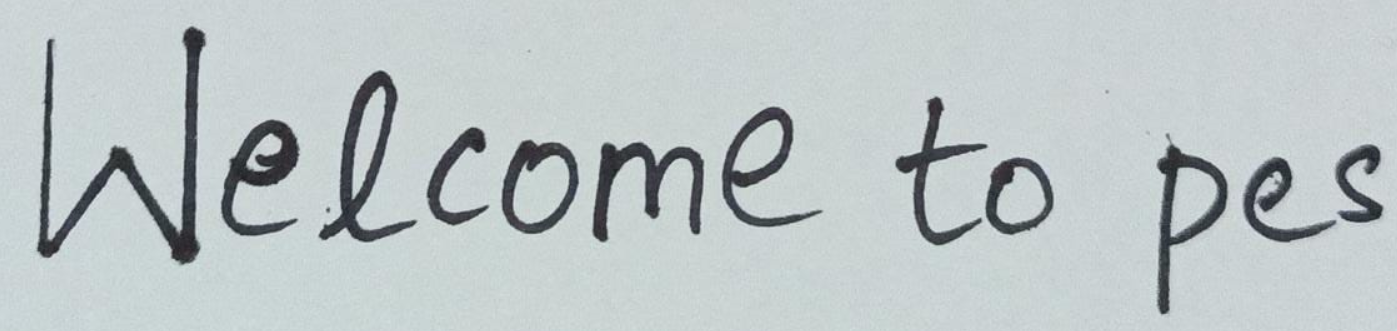 Welcome to pes